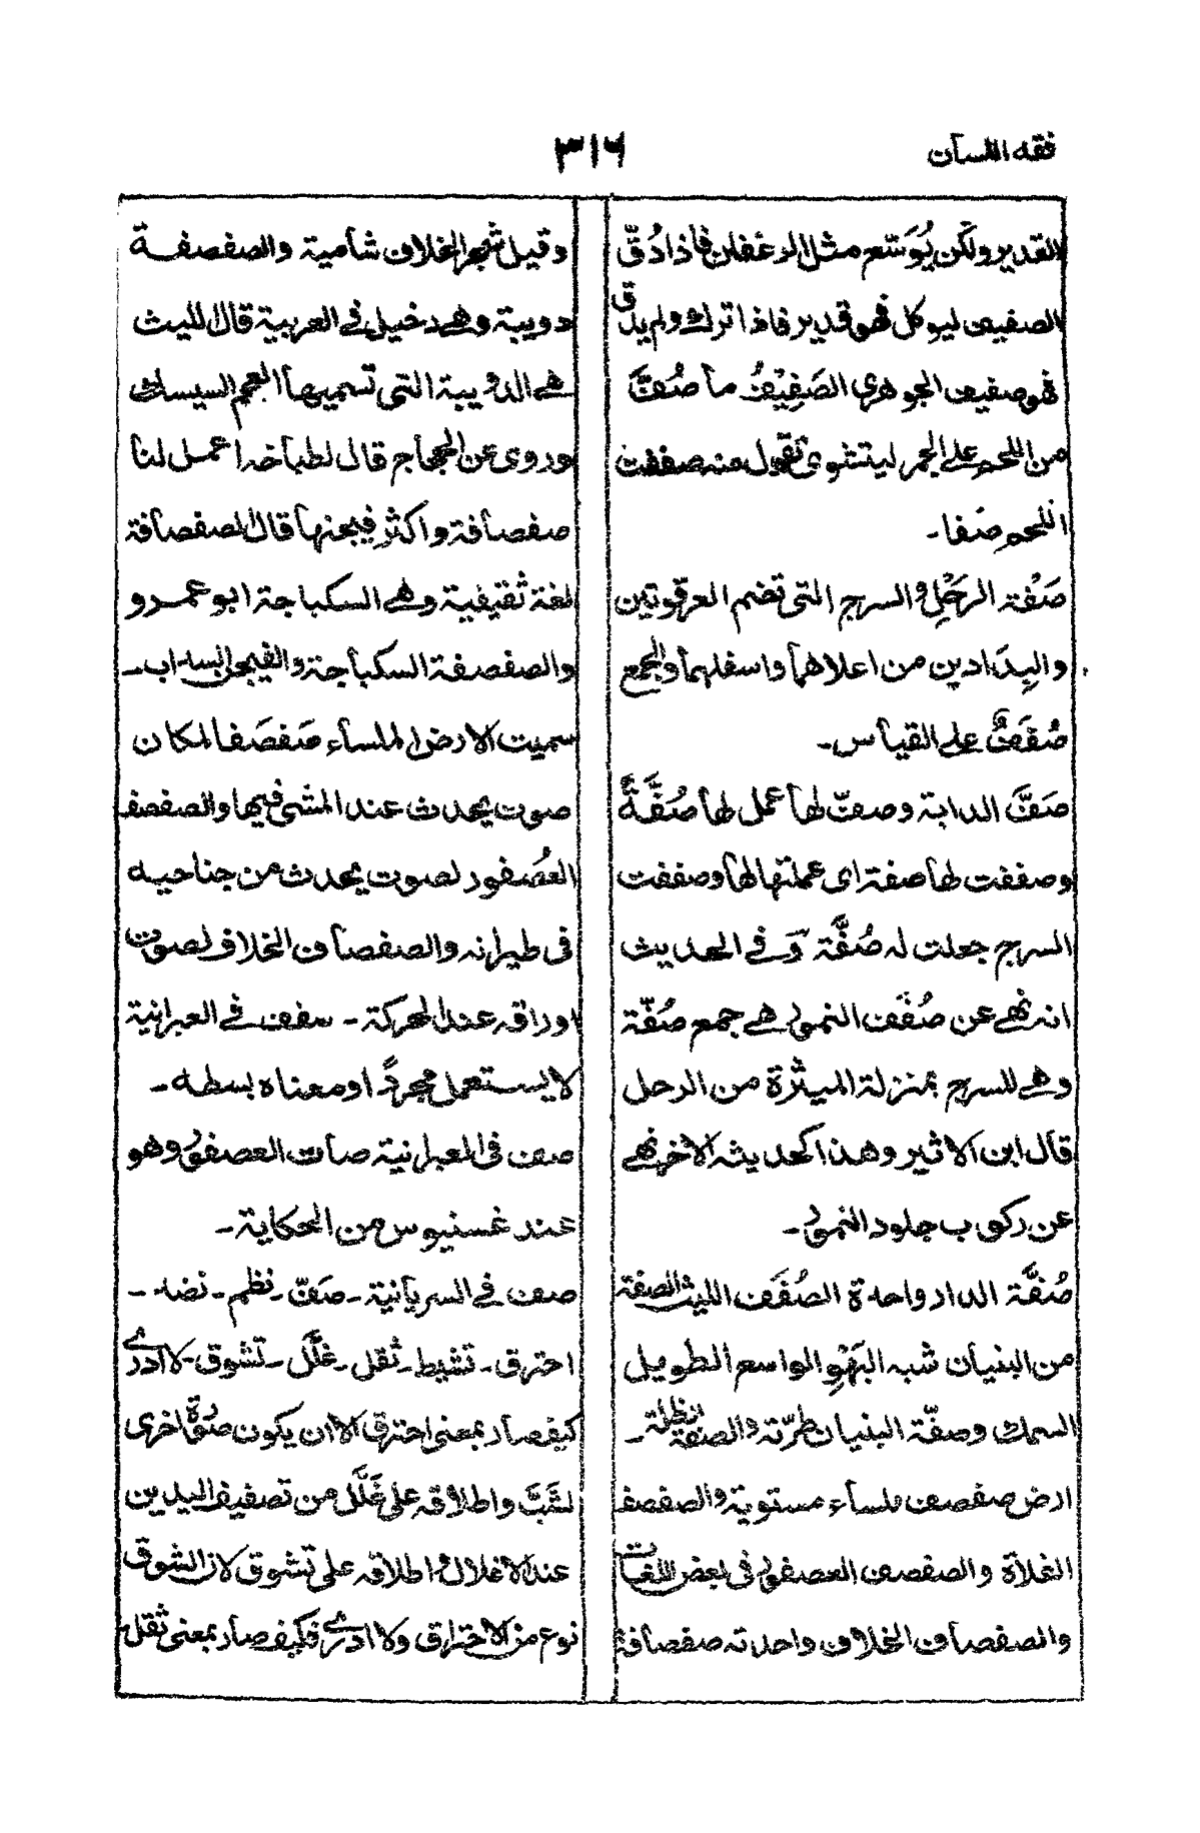 فقه اللسان
٣١٦
القدير ولكن يُوَشَّع مثل الرغفان فاذا دُقّ
الصفيف ليوكل فهو قدير فاذا ترك ولم يدق
فهو صفيف الجوهري الصَفِيْفُ ما صُفَّ
من اللحم على الجمر لينشوى تقول منه صففت
اللحم صَفا۔
صَفْة الرَحْلِ والسرج التى تضم العرقوتين
والبِدَادين من اعلاهما واسفلهما والجمع
صُفَفٌ على القياس۔
صَفَّ الدابة وصفّ لها عمل لها صُفَّةً
وصففت لها صفة اى عملتها لها وصففت
السرج جعلت له صُفَّة وَفے الحديث
انه نهے عن صُفَف النمور هے جمع صُفّة
وهے للسرج بمنزلة الميثرة من الرحل
قال ابن الاثير وهذا كحديثه الاخر نهے
عن ركوب جلود النمور۔
صُفَّة الدار واحدة الصُفَف الليث الصفة
من البنيان شبه البَهْوِ الواسع الطويل
السمك وصفّة البنيان طرّته والصفة الظلة۔
ارض صفصف ملساء مستوية والصفصف
الفلاة والصفصف العصفور فى بعض اللغات
والصفصاف الخلاف واحدته صفصافة
وقيل شجر الخلاف شامية والصفصفة
دويبة وهے دخيل فے العربية قال الليث
هے الدويبة التى تسميها العجم السيسك
وروى عن الحجاج قال لطباخه اعمل لنا
صفصافة واكثر فيجنها قال الصفصافة
لغة ثقيفية وهے السكباجة ابو عمرو
والصفصفة السكباجة والفيجل السداب۔
سميت الارض الملساء صَفصَفا لمكان
صوت يحدث عند المشى فيها والصفصف
العُصفور لصوت يحدث من جناحيه
فى طيرانه والصفصاف الخلاف لصوت
اوراقه عند الحركة۔ سفف فے العبرانية
لا يستعمل مجردًا ومعناه بسطه۔
صف فى العبرانية صات العصفور وهو
عند غسنيوس من الحكاية۔
صف فے السريانية۔ صَفّ۔ نظم۔ نضد۔
احترق۔ تشيط۔ ثقل۔ غَلَّل۔ تشوق۔ لا ادرے
كيف صار بمعنى احترق الا ان يكون صورة اخرى
لشَبَّ واطلاقه على غَلَّل من تصفيف اليدين
عند الاغلال واطلاقه على تشوق لان الشوق
نوع من الاحتراق ولا ادرے فكيف صار بمعنى ثقل